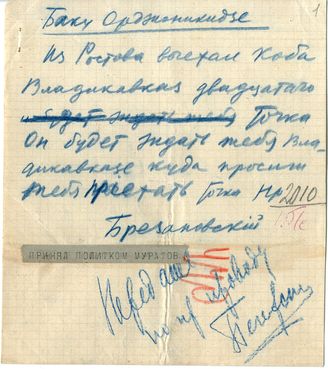 1
Баку Орджоникидзе
Из Ростова выехал Коба
Владикавказ двадцатого
будет ждать тебя Точка
Он будет ждать тебя Вла-
дикавказе куда просили
тебя приехать Точка Нр 2010
Брезановский
ПРИНЯЛ ПОЛИТКОМ МУРАТОВ
Передана
по пр проводу